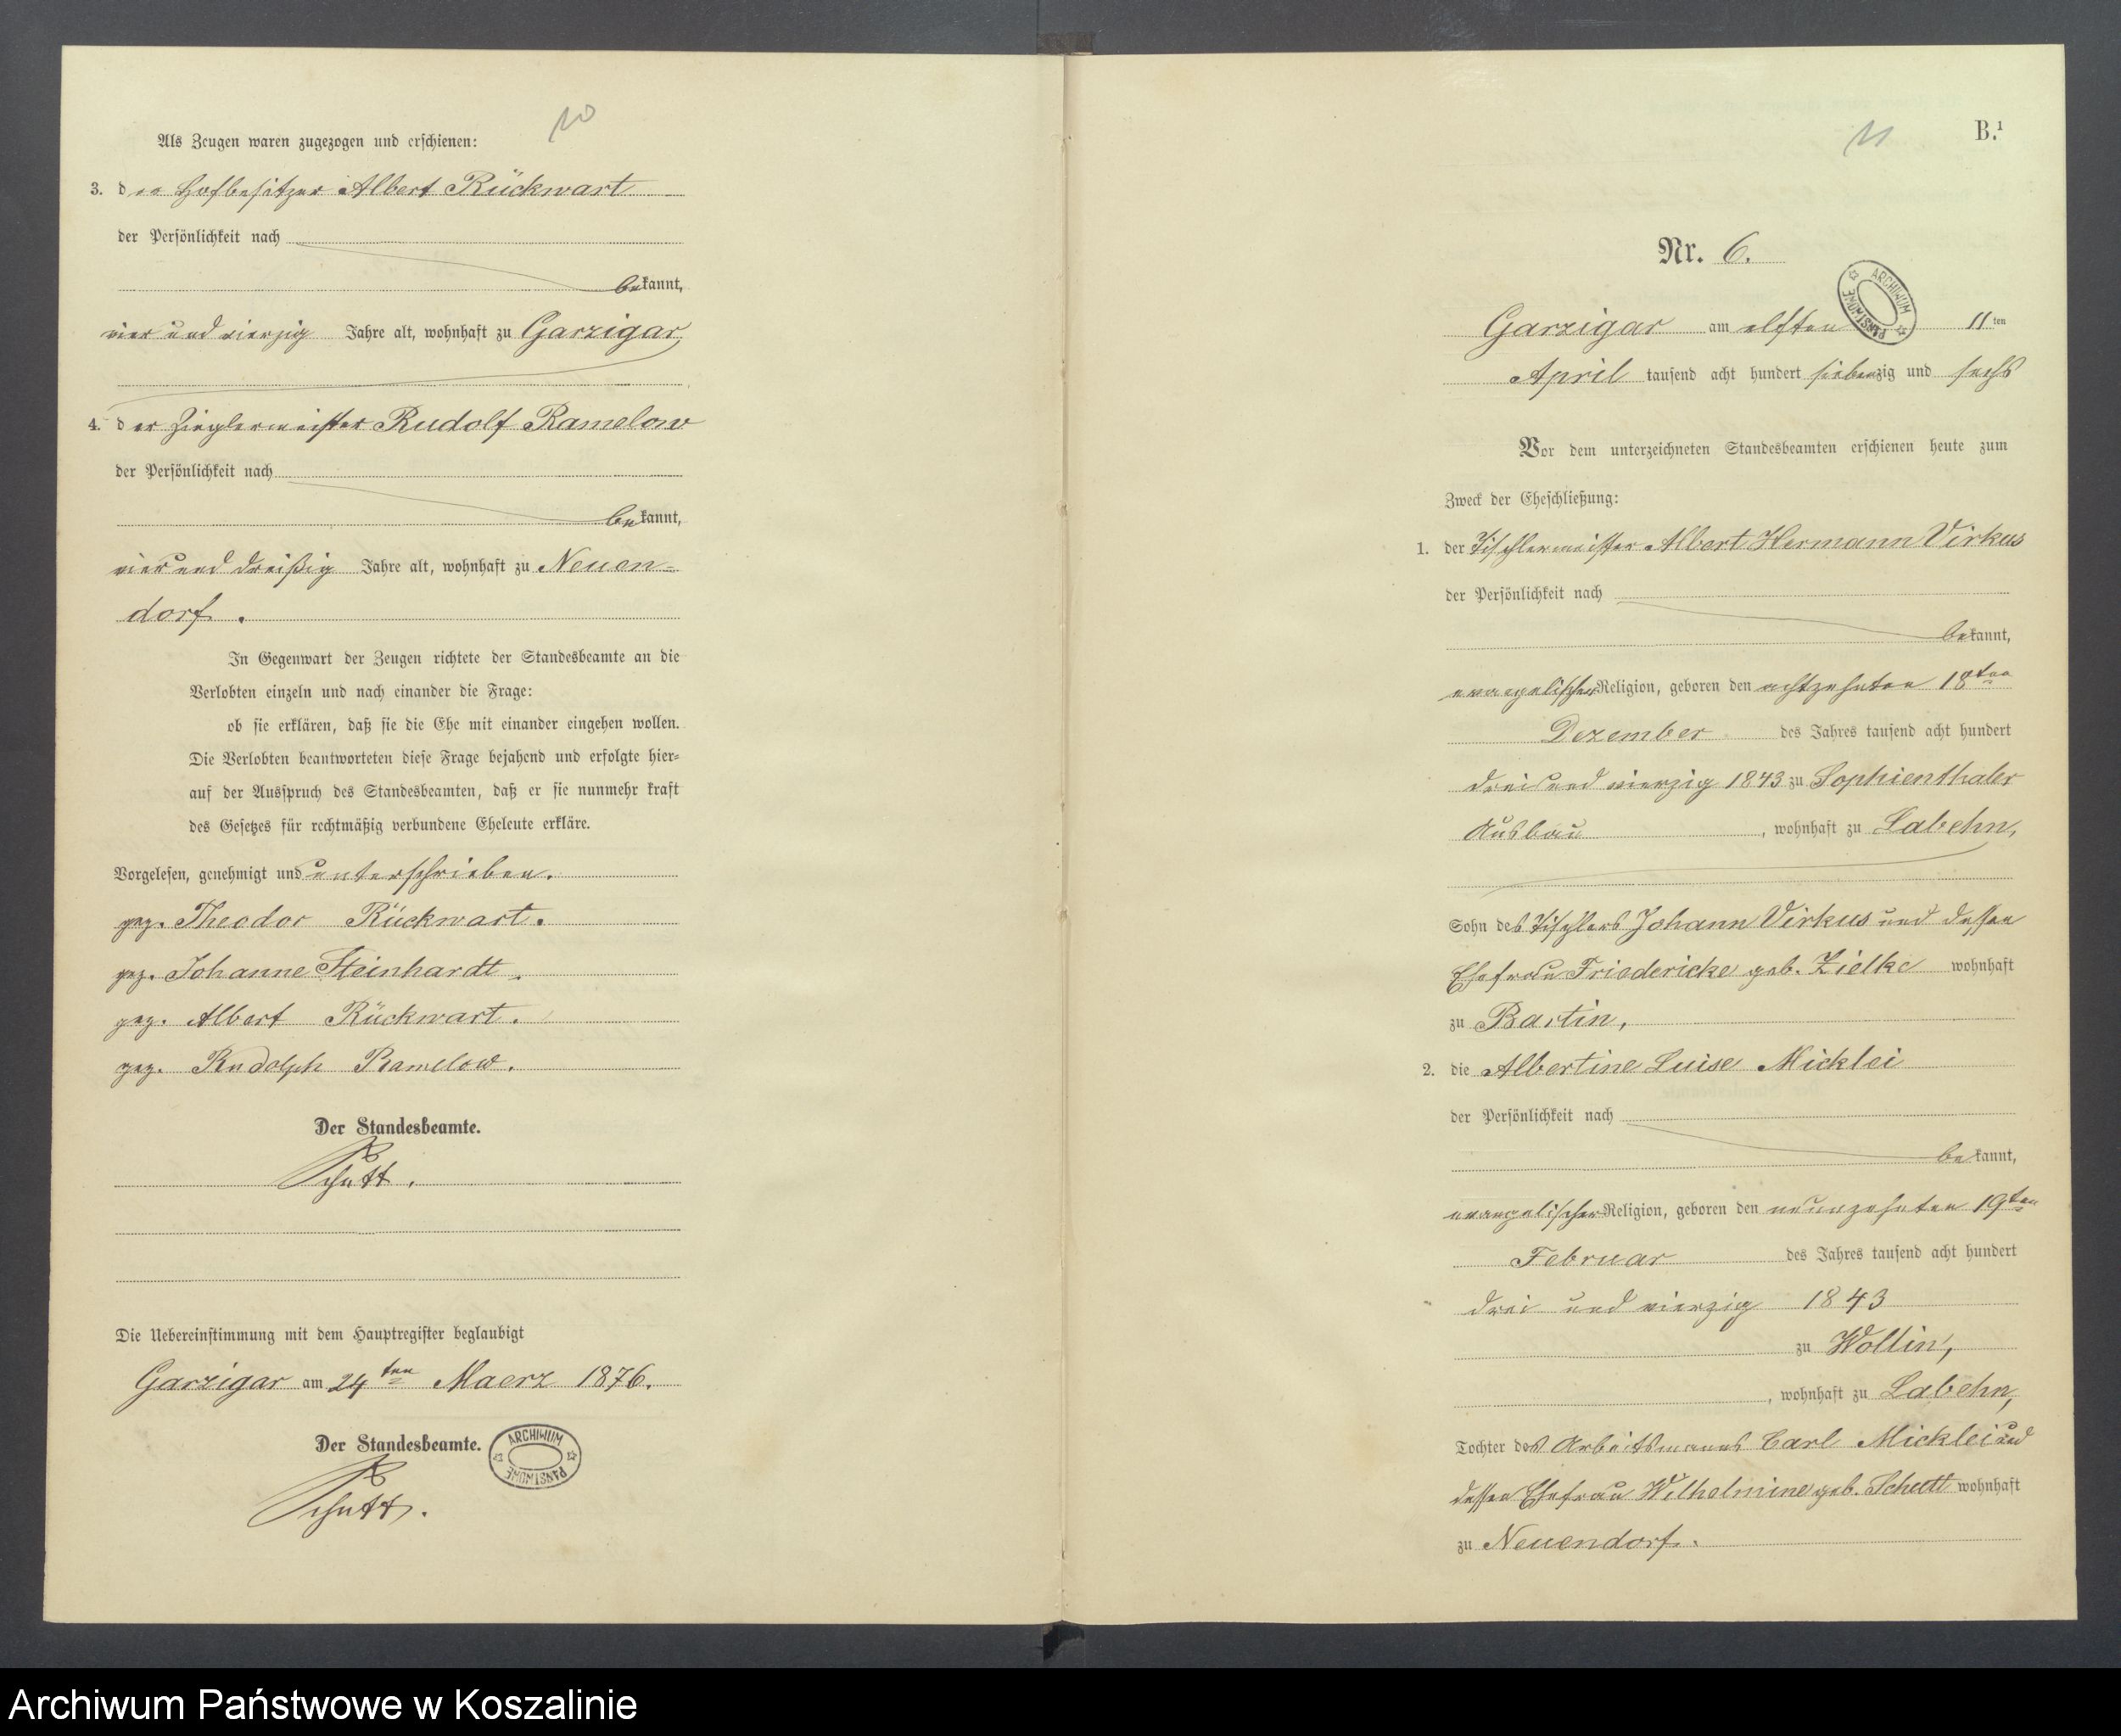 10
Als Zeugen waren zugezogen und erschienen:
3. der Hofbesitzer Albert Rückwart
der Persönlichkeit nach
bekannt,
vier und vierzig Jahre alt, wohnhaft zu Garzigar
4. der Zieglermeister Rudolf Ramelow
der Persönlichkeit nach
bekannt,
vier und dreißig Jahre alt, wohnhaft zu Neuen=
dorf.
In Gegenwart der Zeugen richtete der Standesbeamte an die
Verlobten einzeln und nach einander die Frage:
ob sie erklären, daß sie die Ehe mit einander eingehen wollen.
Die Verlobten beantworteten diese Frage bejahend und erfolgte hier=
auf der Ausspruch des Standesbeamten, daß er sie nunmehr kraft
des Gesetzes für rechtmäßig verbundene Eheleute erkläre.
Vorgelesen, genehmigt und unterschrieben.
gez. Theodor Rückwart.
gez. Johanne Steinhardt.
gez. Albert Rückwart.
gez. Rudolph Ramelow.
Der Standesbeamte.
Schutt.
Die Uebereinstimmung mit dem Hauptregister beglaubigt
Garzigar am 24ten Maerz 1876.
Der Standesbeamte.
ARCHIWUM PAŃSTWOWE
Schutt.
11
B.1
Nr. 6.
ARCHIWUM PAŃSTWOWE
Garzigar am elften 11ten
April tausend acht hundert siebenzig und sechs
Vor dem unterzeichneten Standesbeamten erschienen heute zum
Zweck der Eheschließung:
1. der Tischlermeister Albert Hermann Virkus
der Persönlichkeit nach
bekannt,
evangelischer Religion, geboren den achtzehnten 18ten
Dezember des Jahres tausend acht hundert
drei und vierzig 1843 zu Sophienthaler
Ausbau, wohnhaft zu Labehn,
Sohn des Tischlers Johann Virkus und dessen
Ehefrau Friedericke geb. Zielke wohnhaft
zu Bartin,
2. die Albertine Luise Micklei
der Persönlichkeit nach
bekannt,
evangelischer Religion, geboren den neunzehnten 19ten
Februar des Jahres tausend acht hundert
drei und vierzig 1843
zu Wollin,
, wohnhaft zu Labehn,
Tochter des Arbeitsmanns Carl Micklei und
dessen Ehefrau Wilhelmine geb. Schutt wohnhaft
zu Neuendorf.
Archiwum Państwowe w Koszalinie